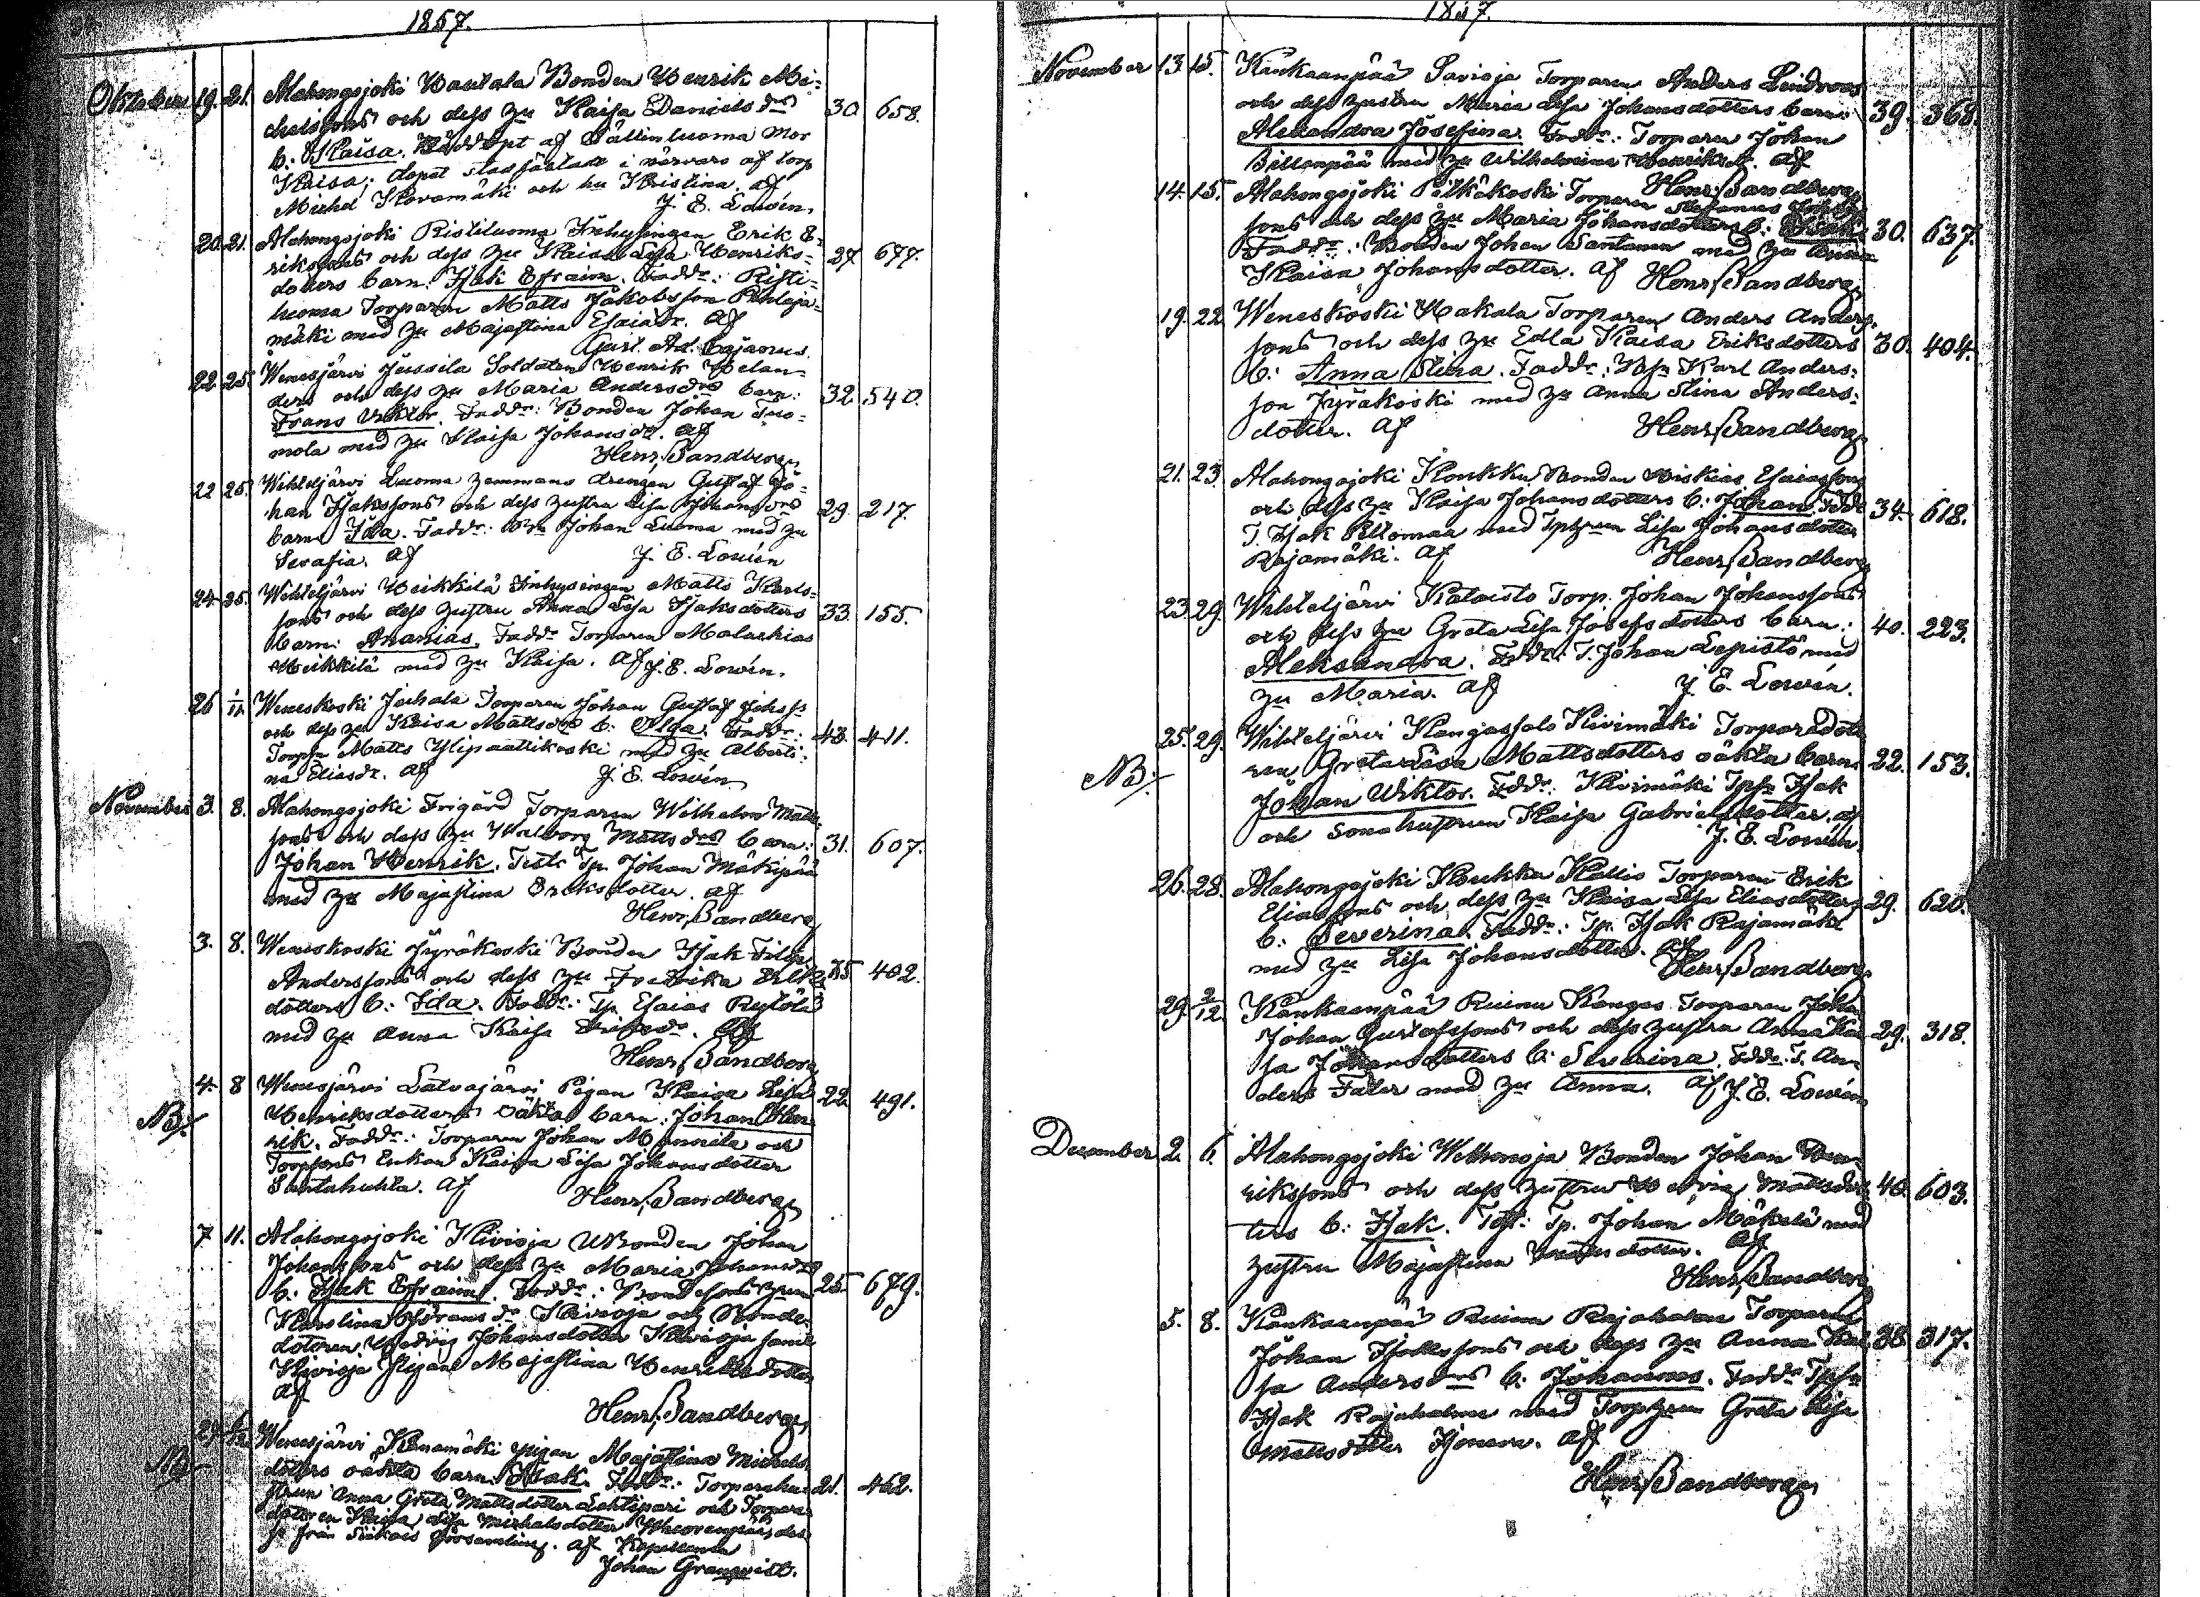 1857.
Oktober 19. 21. Alahongojoki Wautala Bonden Henrik Mi-
chelssons och dess hu Kaisa Daniels drs 30 658.
b: Kaisa. af Sällinluoma Mor
Kaisa; döpet stadfästade i närvaro af torp
Michel Kovamäki och hu Kristina. af
J. E. Lowén.
20. 21. Alahongojoki Ristiluoma Inhysingen Erik E-
rikssons och dess hu Kaisa Lisa Henriks- 27 677.
dotters barn: Isak Efraim. Faddr: Risti-
luoma Torparen Matts Jakobsson Pihlaja-
mäki med hu Majastina Esaiædr. af
Gust. Ad. Cajanus.
22 25. Wenesjärvi Jussila Soldaten Henrik Welan-
ders och dess hu Maria Anders drs barn: 32. 540.
Frans Viktor. Faddr: Bonden Johan Tuo-
mola med hu Kaisa Johansdr. af
Henr. Sandberg
22 25. Wihteljärvi Luoma hemmans drengen Gustaf Jo-
han Isakssons och dess hustru Lisa Johans drs 29. 217.
barn Ida. Faddr: Bn Johan Luoma med hu
Serafia. af J. E. Lowén
24. 25. Wihteljärvi Heikkilä Inhysingen Matts Karls-
sons och dess hustru Anna Lisa Isaksdotters 33. 155.
barn: Ananias. Faddr Torparen Malachias
Heikkilä med hu Kaisa. af J. E. Lowén.
26 1/11. Weneskoski Juhala Torparen Johan Gustaf Johss
och dess hu Kaisa Matts drs b. Olga. Faddr: 43. 411.
Torpn Matts Ylipaattikoski med hu Alberti-
na Eliasdr. af J. E. Lowén
November 3. 8. Alahongojoki Frigård Torparen Wilhelm Matts-
sons och dess hu Walborg Matts drs barn: 31. 607.
Johan Henrik. Test: Tp. Johan Mäkipää
med hu Majastina Eriksdotter. af
Henr. Sandberg
3. 8. Weneskoski Jyräkoski Bonden Isak Filip
Anderssons och dess hu Fredrika Eriks 35 402.
dotters b: Ida. Faddr: Tp. Esaias Rystölä
med hu Anna Kaisa af
Henr. Sandberg
4. 8 Wenesjärvi Satvajärvi Pigan Kaisa Lisa 22 491.
NB. Henriksdotters oäkta barn: Johan Hen-
rik. Faddr: Torparen Johan Mannila och
Torpsons Enkan Kaisa Lisa Johansdotter
Santahuhta. af Henr. Sandberg
7 11. Alahongojoki Kivioja Bonden Johan
Johanssons och dess hu Maria Johans drs
b. Isak Efraim. Faddr: Bondesons hun 25. 679.
Karolina dr Kivioja och Bonde-
dotteren Hedvig Johansdotter Kivioja samt
Kivioja Pigan Majastina Henriksdotter
af
Henr. Sandberg
NB Wenesjärvi Kanamäki pigan Majastina Michels-
dotters oäkta barn: Isak. Faddr: Torparehu- 21. 462.
strun Anna Greta Mattsdotter Lahtipari och Torpare-
dotteren Kaisa Lisa Michelsdotter
från Siikais församling. af Kapellanen
Johan Granqvist.
1857.
November 13 15. Kankaanpää Savioja Torparen Anders Lindroos
och dess hustru Maria Lisa Johansdotters barn: 39. 368.
Alexandra Josefina. Faddr: Torparen Johan
med hu Wilhelmina Henriksdr. af
Henr. Sandberg
14. 15. Alahongojoki Pitkäkoski Torparen Stefanus Johans-
sons och dess hu Maria Johansdotters b: 30. 637.
Faddr: Bonden Johan Santanen med hu Anna
Kaisa Johansdotter. af Henr. Sandberg
19. 22 Weneskoski Hakala Torparen Anders Anders-
sons och dess hu Edla Kaisa Eriksdotters 30. 404.
b: Anna Stina. Faddr: Karl Anders-
son Jyräkoski med hu Anna Stina Anders-
dotter. af Henr. Sandberg
21. 23. Alahongojoki Koukku Bonden Hiskias Esaiassons
och dess hu Kaisa Johansdotters b. Johan. Fddr 34. 618.
T. Isak Peltomaa med Tphun Lisa Johansdotter
Rajamäki. af Henr. Sandberg
23. 29. Wihteljärvi Kataisto Torp. Johan Johanssons
och dess hu Greta Lisa Josefsdotters barn: 40. 223.
Aleksandra. Fddr: T. Johan Lepistö med
hu Maria. af J. E. Lowén.
25. 29. Wihteljärvi Kangassalo Kivimäki Torparedotte-
NB. ren Greta Lisa Mattsdotters oäkta barn: 22. 153.
Johan Wiktor. Fddr: Kivimäki Tpsn Isak
och sonahustrun Kaisa Gabrielsdotter. af
J. E. Lowén
26. 28. Alahongojoki Koukku Kallio Torparen Erik
Eliassons och dess hu Kaisa Lisa Eliasdotters 29. 620.
b: Severina. Faddr: Tp. Isak Rajamäki
med hu Lisa Johansdotter. af
Henr. Sandberg
29. 2/12. Kankaanpää Ruinu Kangas Torparen Johan
Johan Gustafssons och dess hustru Anna Kai- 29. 318.
sa Johansdotters b: Severina. Fddr: T. An-
ders Fäler med hu Anna. af J. E. Lowén
December 2. 6. Alahongojoki Wethenoja Bonden Johan Hen-
rikssons och dess hustru Hedvig Mattsdot- 40. 603.
ters b: Isak. Test: Tp. Johan Mäkelä med
hustru Majastina dotter. af
Henr. Sandberg
5. 8. Kankaanpää Ruinu Rajahalme Torparen
Johan Isakssons och dess hu Anna Kai- 38. 317.
sa Anders drs b. Johannes. Faddr Tpsn
Isak Rajahalme med Torphun Greta Lisa
Mattsdotter Isonen. af
Henr. Sandberg